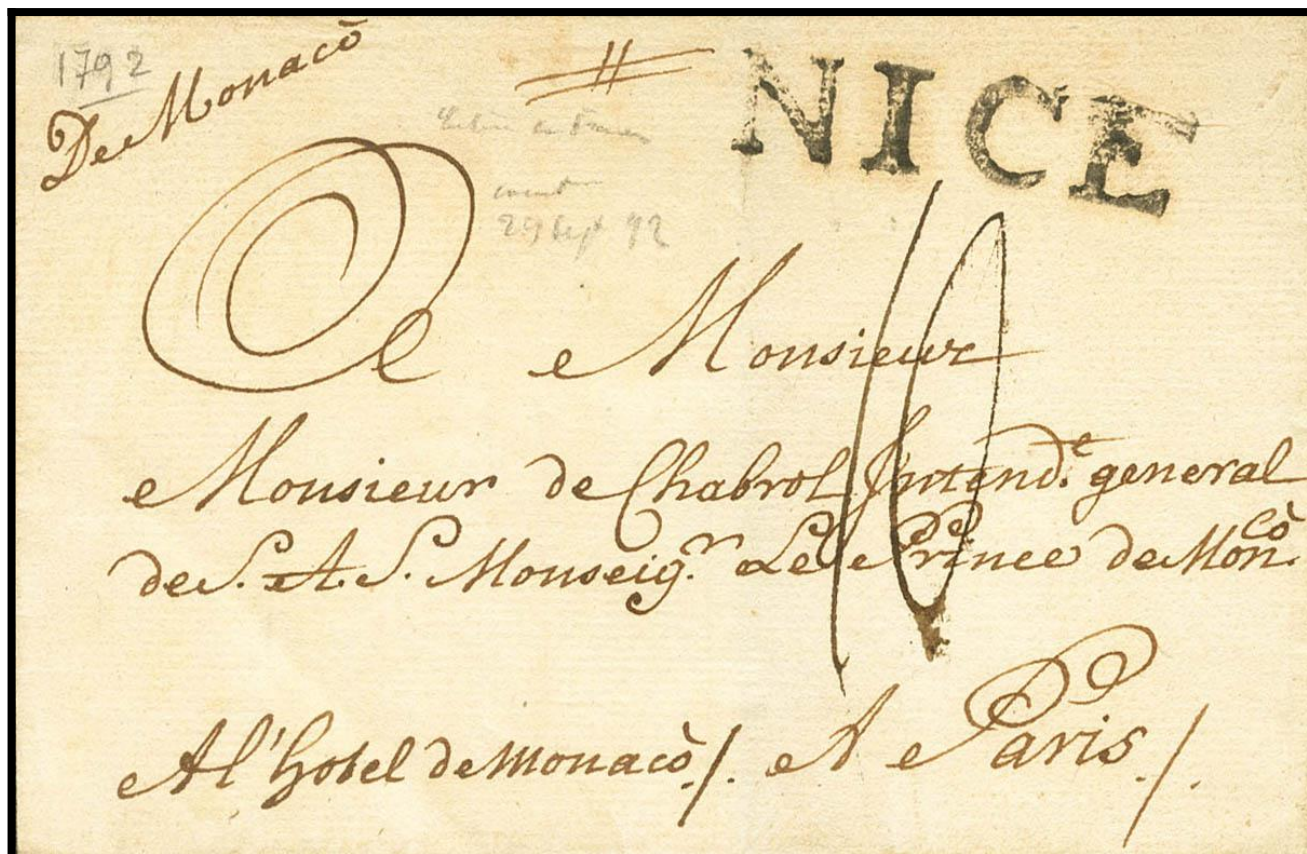 1792
De Monacò
NICE
29 Sept 92
A Monsieur
Monsieur de Chabrol Intend.e general
de S. A. S. Monseig.r Le Prince de Mon.cò
A l'hotel de Monacò /. A Paris /.